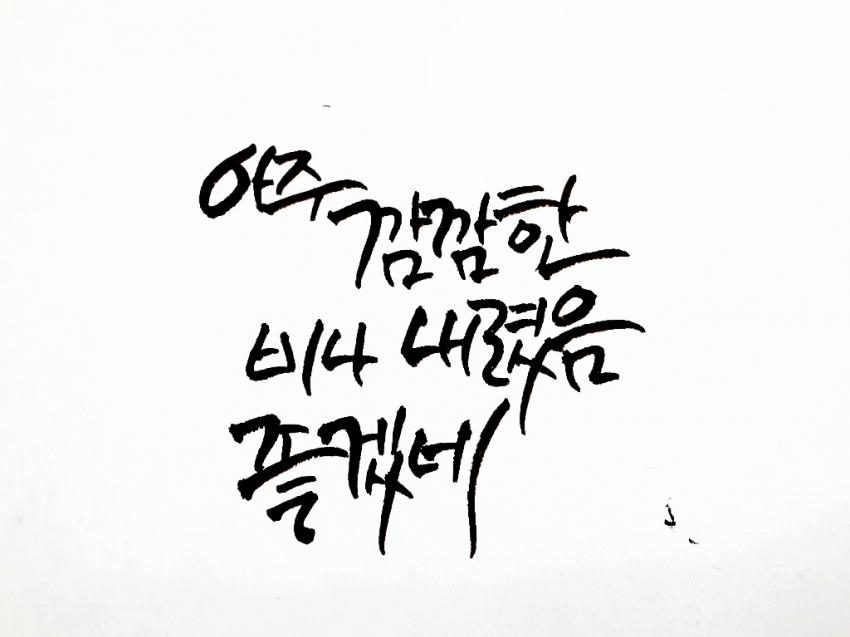 아주 깜깜한
비나 내렸음
좋겠네